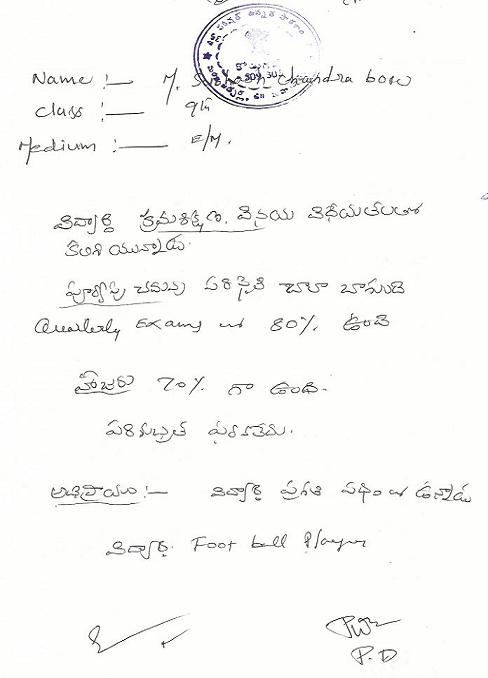 Name :— M. Subhash Chandra bose
Class :— 9th
Medium :— E/M.
విద్యార్థి క్రమశిక్షణ, వినయ విధేయతలతో
కలిగి యున్నాడు.
పూర్వపు చదువు పరిస్థితి చాలా బాగుంది
Quarterly Exams లో 80% ఉంది
హాజరు 70% గా ఉంది.
అభిప్రాయం :— విద్యార్థి ప్రగతి పథంలో ఉన్నాడు
విద్యార్థి Foot ball Player
P.D